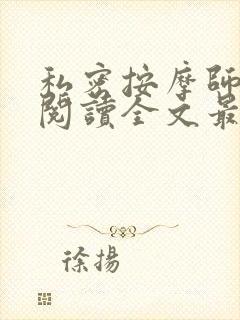 私密按摩師
閱讀全文最
徐揚